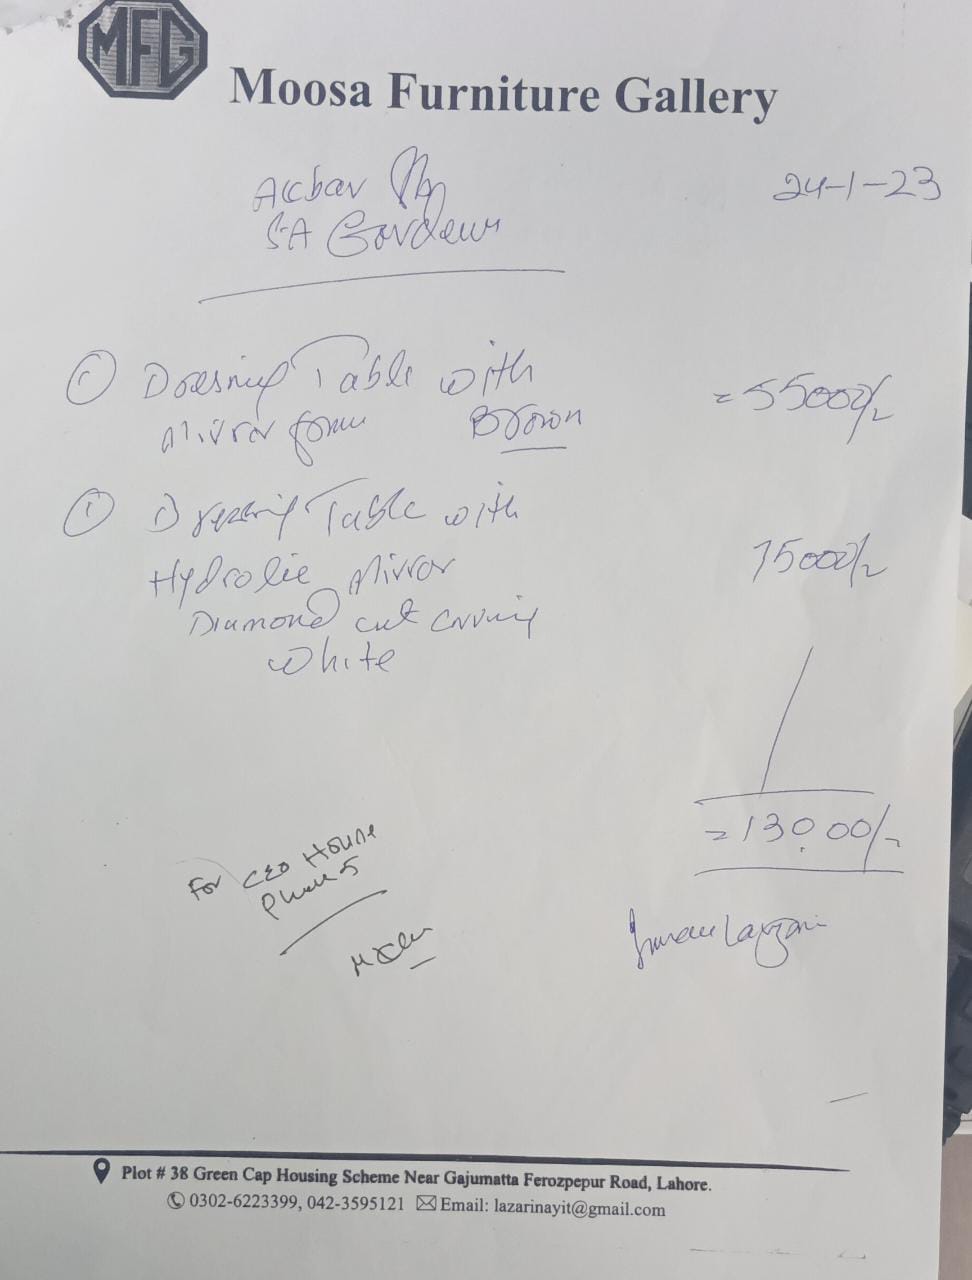 MFG
Moosa Furniture Gallery
Akbar
24-1-23
SA Gardens
① Dressing Table with
= 55000/-
Mirror Brown
① Dressing Table with
Hydrolic Mirror
75000/-
Diamond cut
White
= 130.00/-
For CEO House
Phase 5
Plot # 38 Green Cap Housing Scheme Near Gajumatta Ferozpepur Road, Lahore.
0302-6223399, 042-3595121 Email: lazarinayit@gmail.com